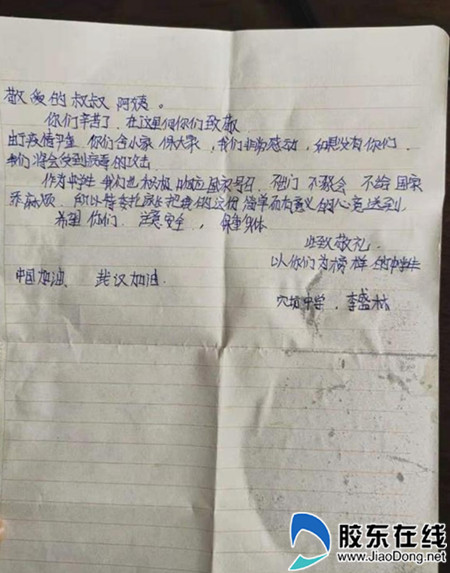 敬爱的叔叔 阿姨。
你们辛苦了、在这里向你们致敬
由于疫情严重 你们舍小家 保大家，我们非常感动，如果没有你们，
我们将会受到病毒的攻击
作为中学生 我们也积极响应国家号召、不出门 不聚会 不给国家
添麻烦，所以特委托家长把我的这份简单而有意义的心意送到
希望你们、注意安全，保重身体
此致敬礼.
以你们为榜样的中学生
中国加油、武汉加油.
中学、李盛
胶东在线
www.JiaoDong.net